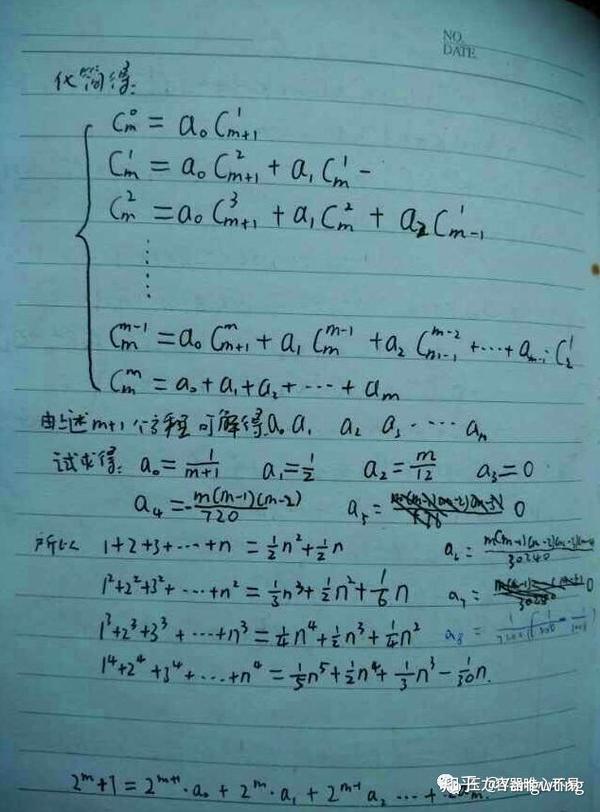 NO.
DATE
化简得:
C_m^0 = a_0 C_{m+1}^1
C_m^1 = a_0 C_{m+1}^2 + a_1 C_m^1 -
C_m^2 = a_0 C_{m+1}^3 + a_1 C_m^2 + a_2 C_{m-1}^1
⋮
C_m^{m-1} = a_0 C_{m+1}^m + a_1 C_m^{m-1} + a_2 C_{m-1}^{m-2} + ⋯ + a_{m-1} C_2^1
C_m^m = a_0 + a_1 + a_2 + ⋯ + a_m
由上述m+1个方程可解得 a_0 a_1 a_2 a_3 ⋯ a_m
试求得: a_0 = 1/(m+1) a_1 = 1/2 a_2 = m/12 a_3 = 0
a_4 = -m(m-1)(m-2)/720 a_5 = 0
所以 1+2+3+⋯+n = 1/2 n² + 1/2 n a_6 = m(m-1)(m-2)(m-3)(m-4)/30240
1²+2²+3²+⋯+n² = 1/3 n³ + 1/2 n² + 1/6 n a_7 = 0
1³+2³+3³+⋯+n³ = 1/4 n⁴ + 1/2 n³ + 1/4 n² a_8 =
1⁴+2⁴+3⁴+⋯+n⁴ = 1/5 n⁵ + 1/2 n⁴ + 1/3 n³ - 1/30 n.
2^m + 1 = 2^{m+1}·a_0 + 2^m·a_1 + 2^{m-1} a_2 ⋯ +